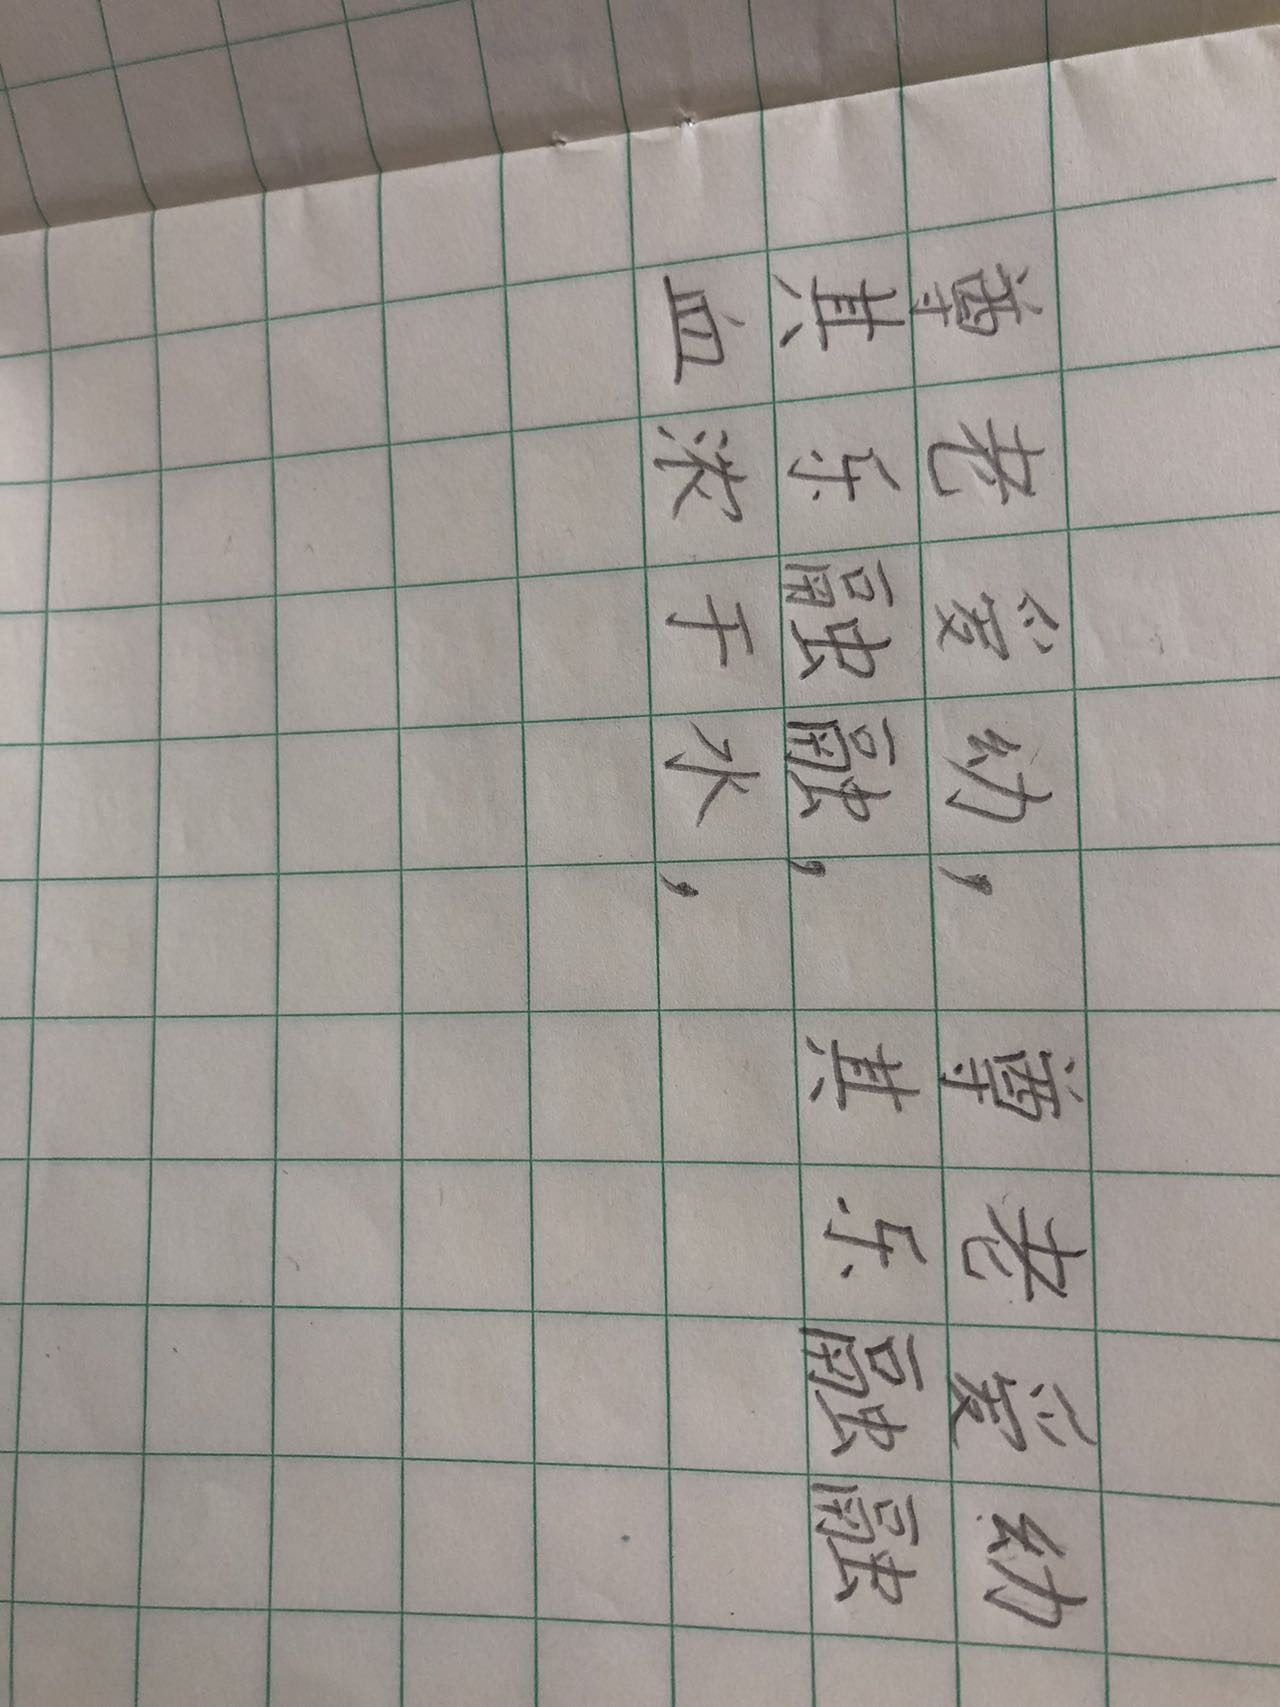 尊老爱幼，尊老爱幼
其乐融融，其乐融融
血浓于水，